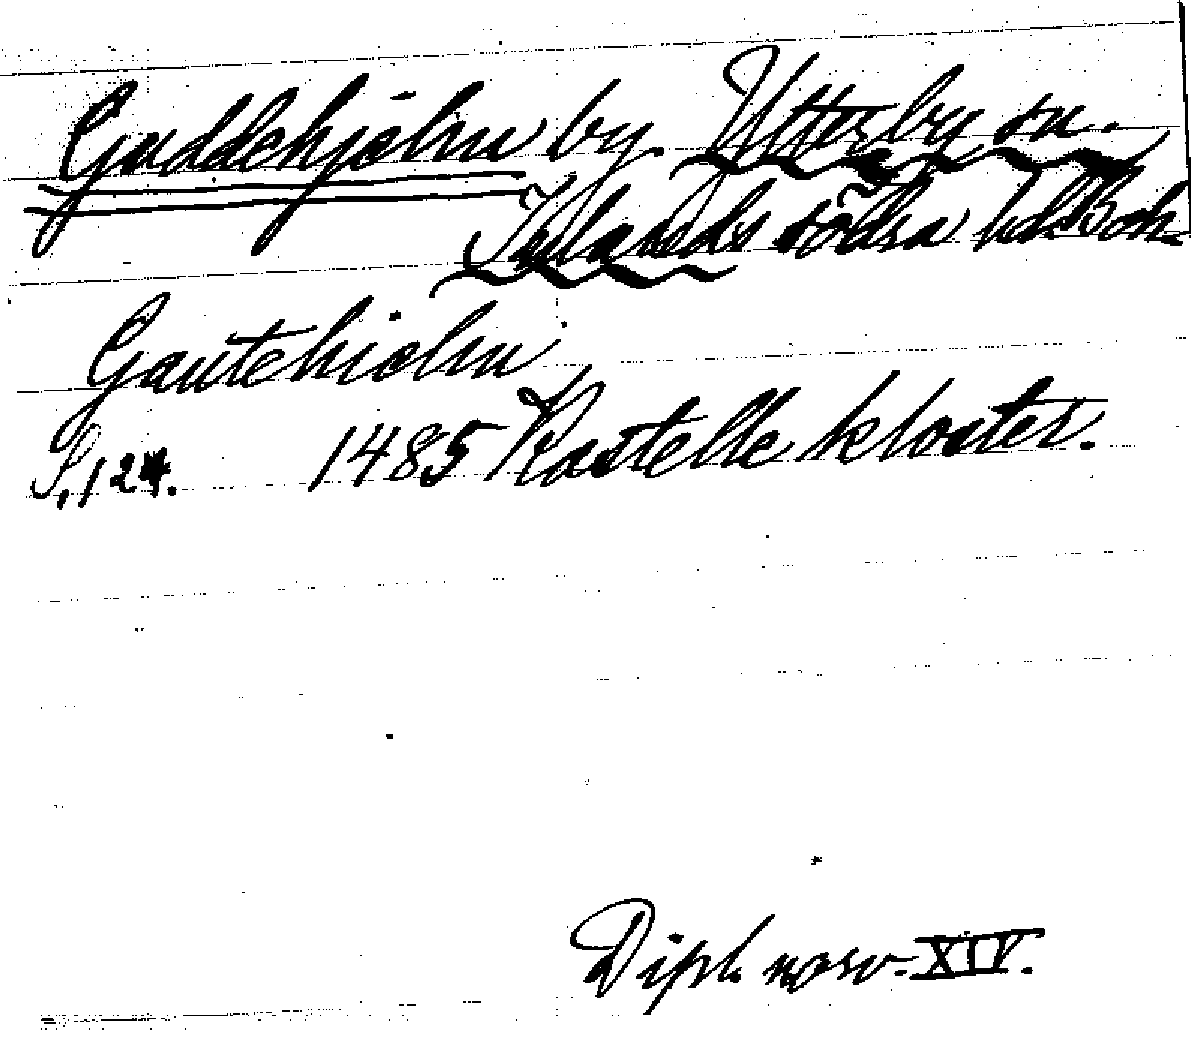 Guddehjälm by. Ytterby sn.
Inlands södra hd Boh.
Gautehiolm
S. 124. 1485 Kastelle kloster.
Dipl. norv. XIV.